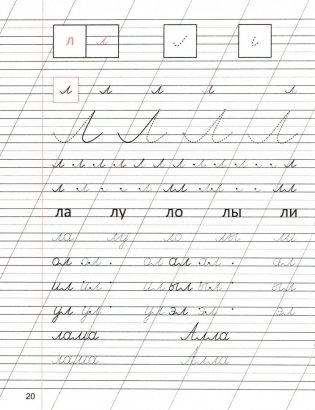 л л
л л л л л
Л Л Л Л
л л л л л л л л л л
л л л лл лл лл
ла лу ло лы ли
ла лу ло лы ли
ал ал ал ал ал ал
ил ил ил ыл ыл ыл
ул ул ул эл эл эл
лама Алла
лама Алла
20